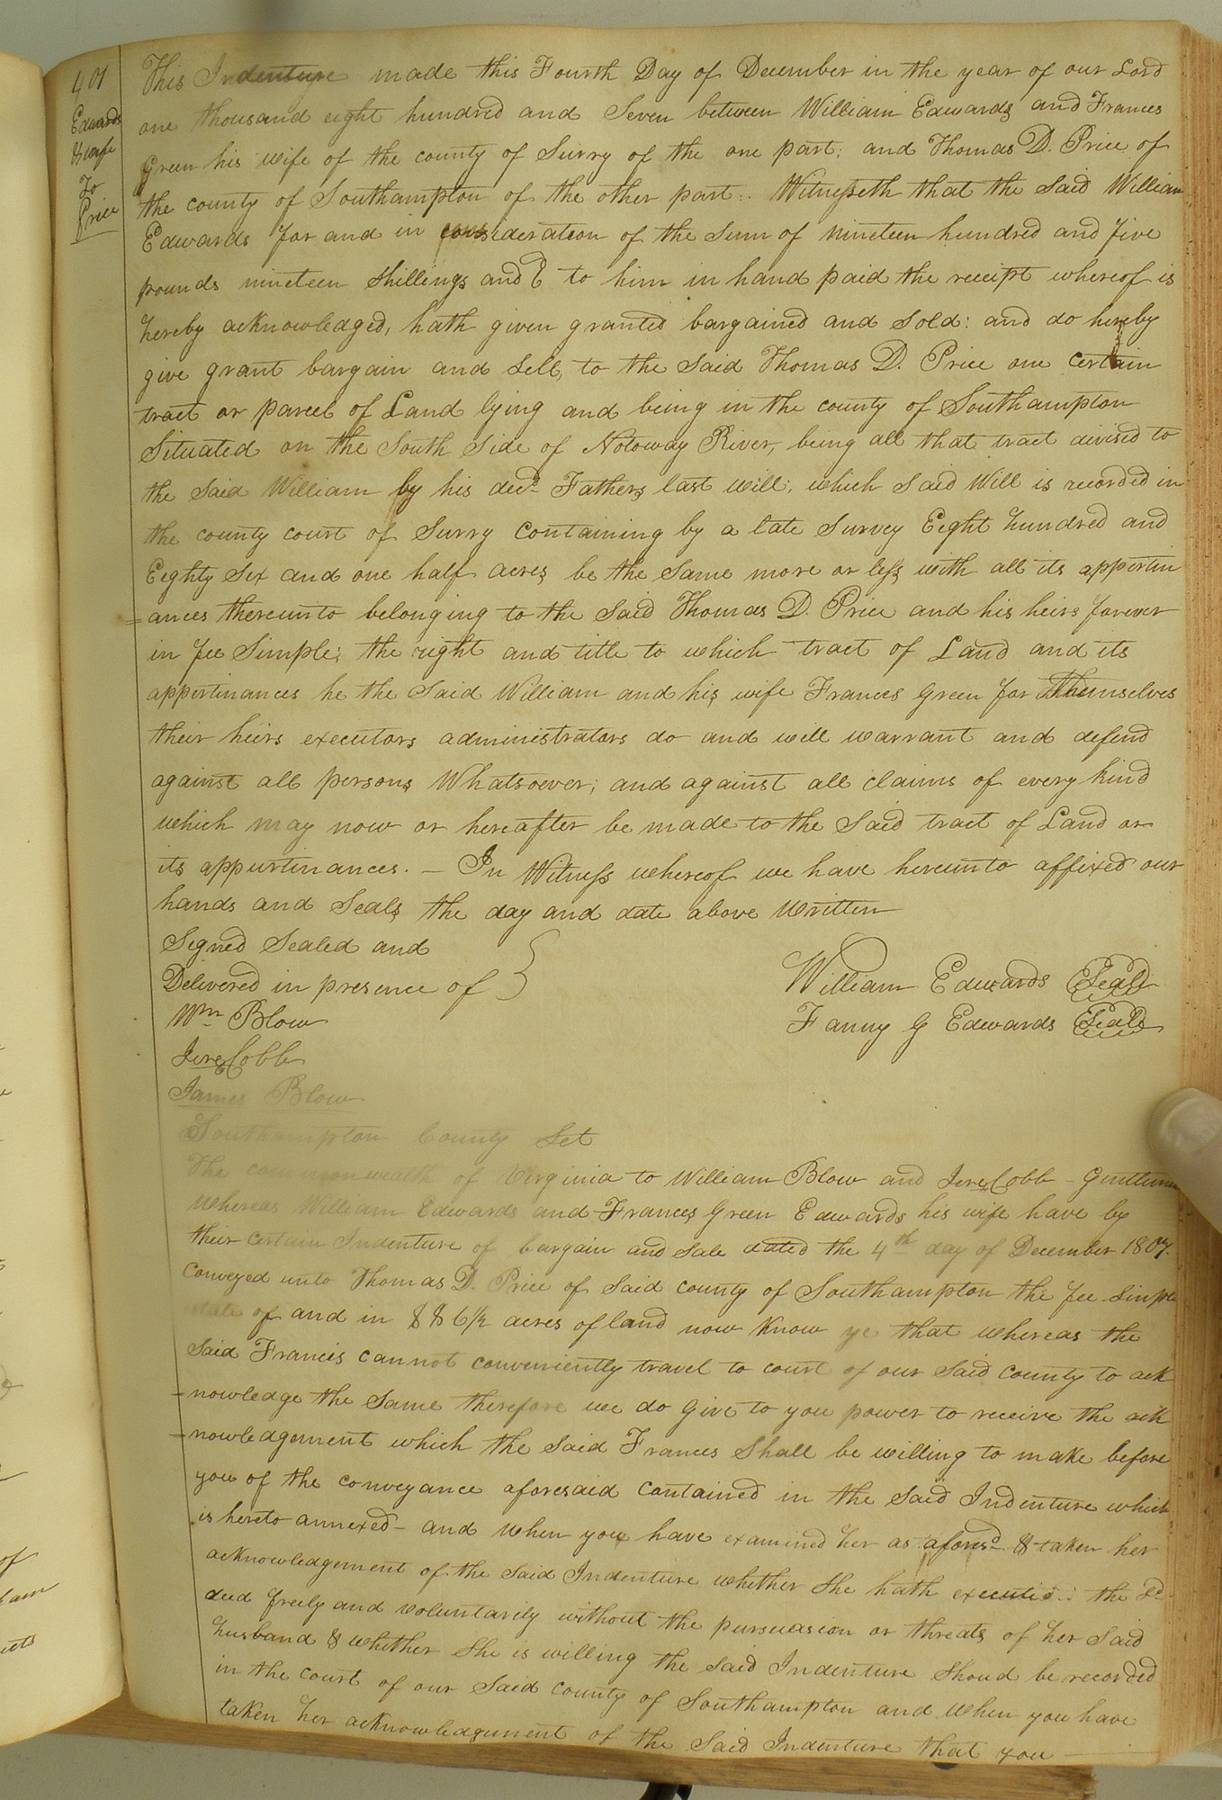 401
Edwards
& wife
To
Price
This Indenture made this Fourth Day of December in the year of our Lord
one thousand eight hundred and Seven between William Edwards and Frances
Green his wife of the county of Surry of the one part; and Thomas D. Price of
the county of Southampton of the other part. Witnesseth that the Said William
Edwards for and in consideration of the Sum of nineteen hundred and five
pounds nineteen shillings and to him in hand paid the receipt whereof is
hereby acknowledged, hath given granted bargained and Sold: and do hereby
give grant bargain and Sell, to the Said Thomas D. Price one certain
tract or parcel of Land lying and being in the county of Southampton
Situated on the South Side of Notoway River, being all that tract devised to
the Said William by his decd. Fathers last will; which Said Will is recorded in
the county court of Surry Containing by a late Survey Eight hundred and
Eighty Six and one half acres be the Same more or less with all its appertin
=ances thereunto belonging to the Said Thomas D. Price and his heirs forever
in fee Simple; the right and title to which tract of Land and its
appertinances he the Said William and his wife Frances Green for themselves
their heirs executors administrators do and will warrant and defend
against all persons Whatsoever; and against all claims of every kind
which may now or hereafter be made to the Said tract of Land or
its appurtinances. — In Witness whereof we have hereunto affixed our
hands and Seals the day and date above Written
Signed Sealed and
Delivered in presence of }
William Edwards Seal
Wm Blow
Fanny G Edwards Seal
Jere Cobb
James Blow
Southampton County Set
The commonwealth of Virginia to William Blow and Jere Cobb - Gentlemen
Whereas William Edwards and Frances Green Edwards his wife have by
their certain Indenture of bargain and Sale dated the 4th day of December 1807.
Conveyed unto Thomas D. Price of Said County of Southampton the fee Simple
estate of and in 886½ acres of land now Know ye that whereas the
Said Francis cannot conveniently travel to court of our Said County to ack
-nowledge the Same therefore we do give to you power to receive the ack
-nowledgement which the Said Frances Shall be willing to make before
you of the conveyance aforesaid Contained in the Said Indenture which
is hereto annexed - and When you have examined her as aforesd & taken her
acknowledgement of the Said Indenture whether She hath executed the Sd.
deed freely and voluntarily without the pursuasion or threats of her Said
husband & whether She is willing the Said Indenture Shoud be recorded
in the court of our Said County of Southampton and When you have
taken her acknowledgement of the Said Indenture that you —